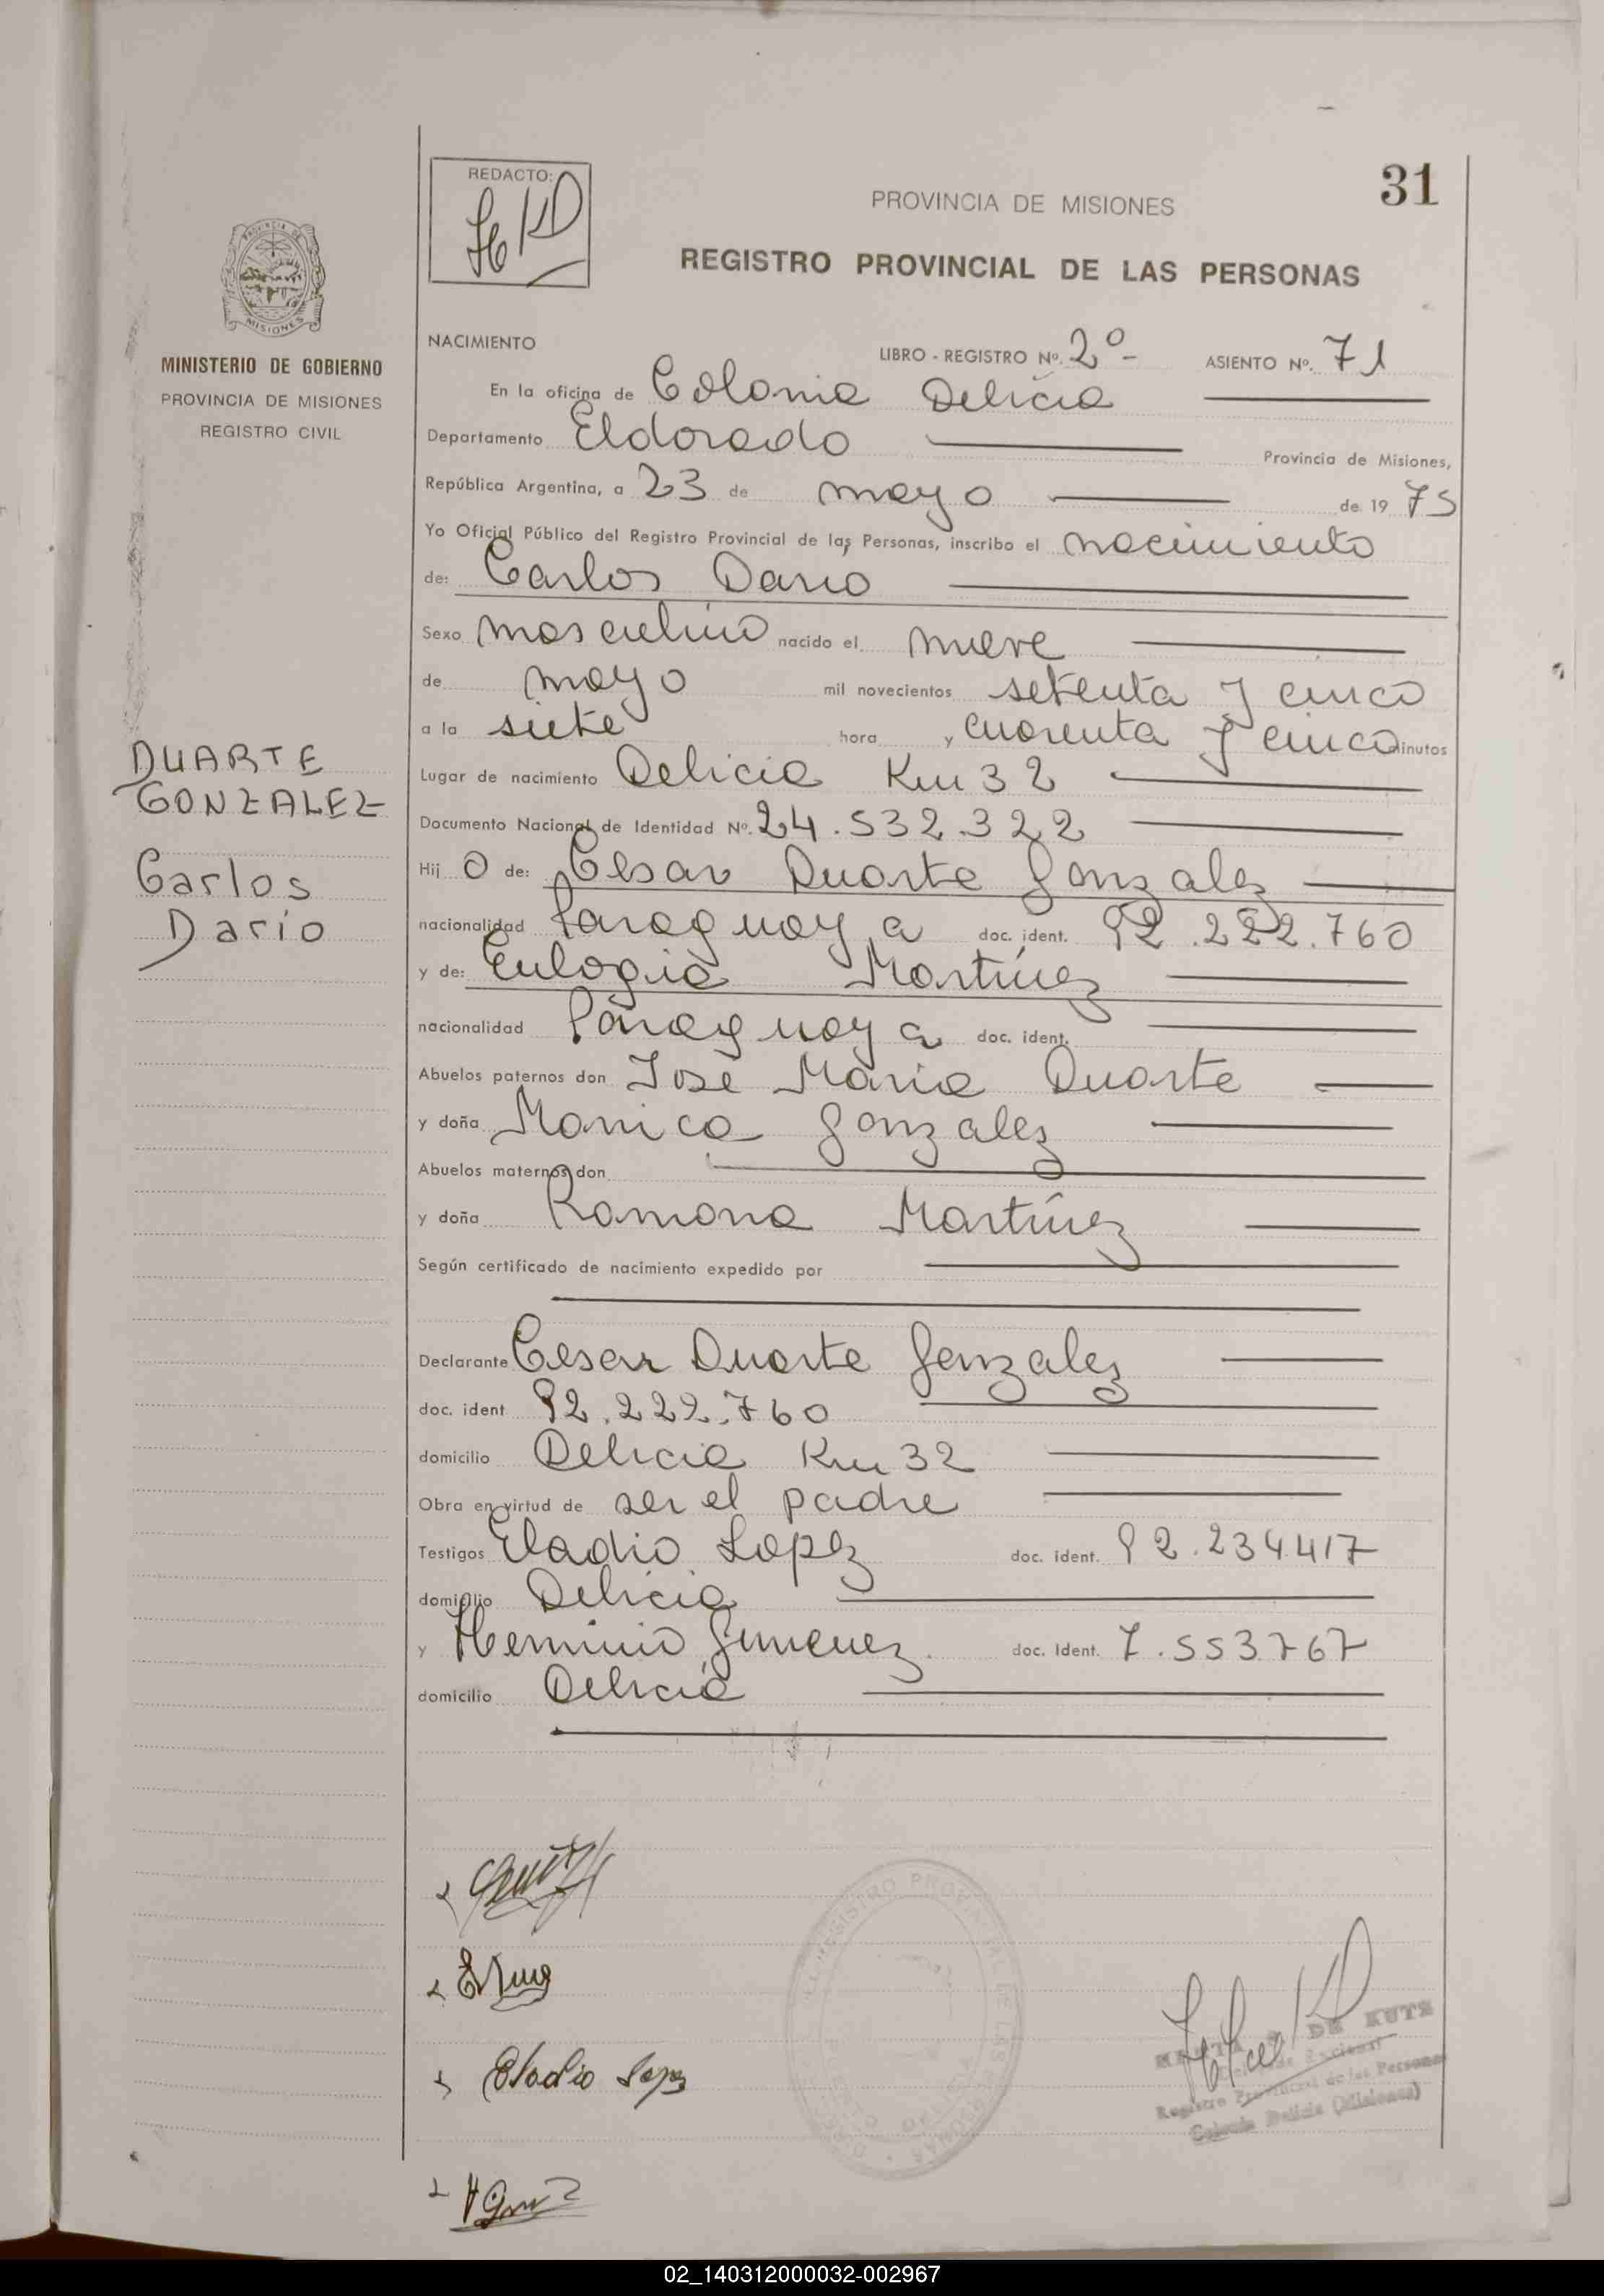 31
REDACTO:
PROVINCIA DE MISIONES
REGISTRO PROVINCIAL DE LAS PERSONAS
MISIONES
MINISTERIO DE GOBIERNO
PROVINCIA DE MISIONES
REGISTRO CIVIL
NACIMIENTO
LIBRO - REGISTRO Nº. 2º- ASIENTO Nº. 71
En la oficina de Colonia Delicia
Departamento Eldorado Provincia de Misiones,
República Argentina, a 23 de mayo de 19 75
Yo Oficial Público del Registro Provincial de las Personas, inscribo el nacimiento
de: Carlos Dario
Sexo masculino nacido el nueve
de mayo mil novecientos setenta y cinco
a la siete hora y cuarenta y cinco minutos
DUARTE
GONZALEZ
Carlos
Darío
Lugar de nacimiento Delicia Km 32
Documento Nacional de Identidad Nº. 24.532.322
Hij o de: Cesar Duarte Gonzalez
nacionalidad Paraguaya doc. ident. 92.222.760
y de: Eulogia Martínez
nacionalidad Paraguaya doc. ident.
Abuelos paternos don José María Duarte
y doña Monica Gonzalez
Abuelos maternos don
y doña Ramona Martínez
Según certificado de nacimiento expedido por
Declarante Cesar Duarte Gonzalez
doc. ident 92.222.760
domicilio Delicia Km 32
Obra en virtud de ser el padre
Testigos Eladio Lopez doc. ident. 92.234.417
domicilio Delicia
y Herminio Gimenez doc. Ident. 7.553.767
domicilio Delicia
Eladio Lopez
DE KUTZ
Registro Provincial de las Personas
Colonia Delicia (Misiones)
02_140312000032-002967